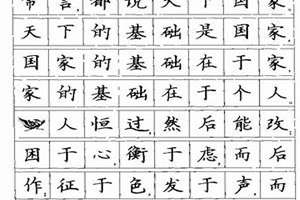 常言都说天下国家
天下的基础是国家
国家的基础在于家
家的基础在于个人
人恒过然后能改
困于心衡于虑而后
作征于色发于声而